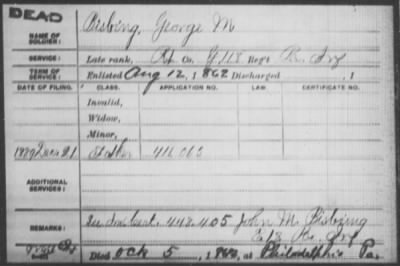 DEAD
NAME OF SOLDIER:
Bisbing, George M
SERVICE:
Late rank, Co. G 118 Reg't Pa. Inf
TERM OF SERVICE:
Enlisted Aug 12, 1862 Discharged , 1
DATE OF FILING. CLASS. APPLICATION NO. LAW. CERTIFICATE NO.
Invalid,
Widow,
Minor,
Father 416 065
ADDITIONAL SERVICES:
REMARKS:
Inv. Cert. 448.405 John M. Bisbing
Pa. Inf
Died Oct 5, 1862, at Philadelphia Pa.